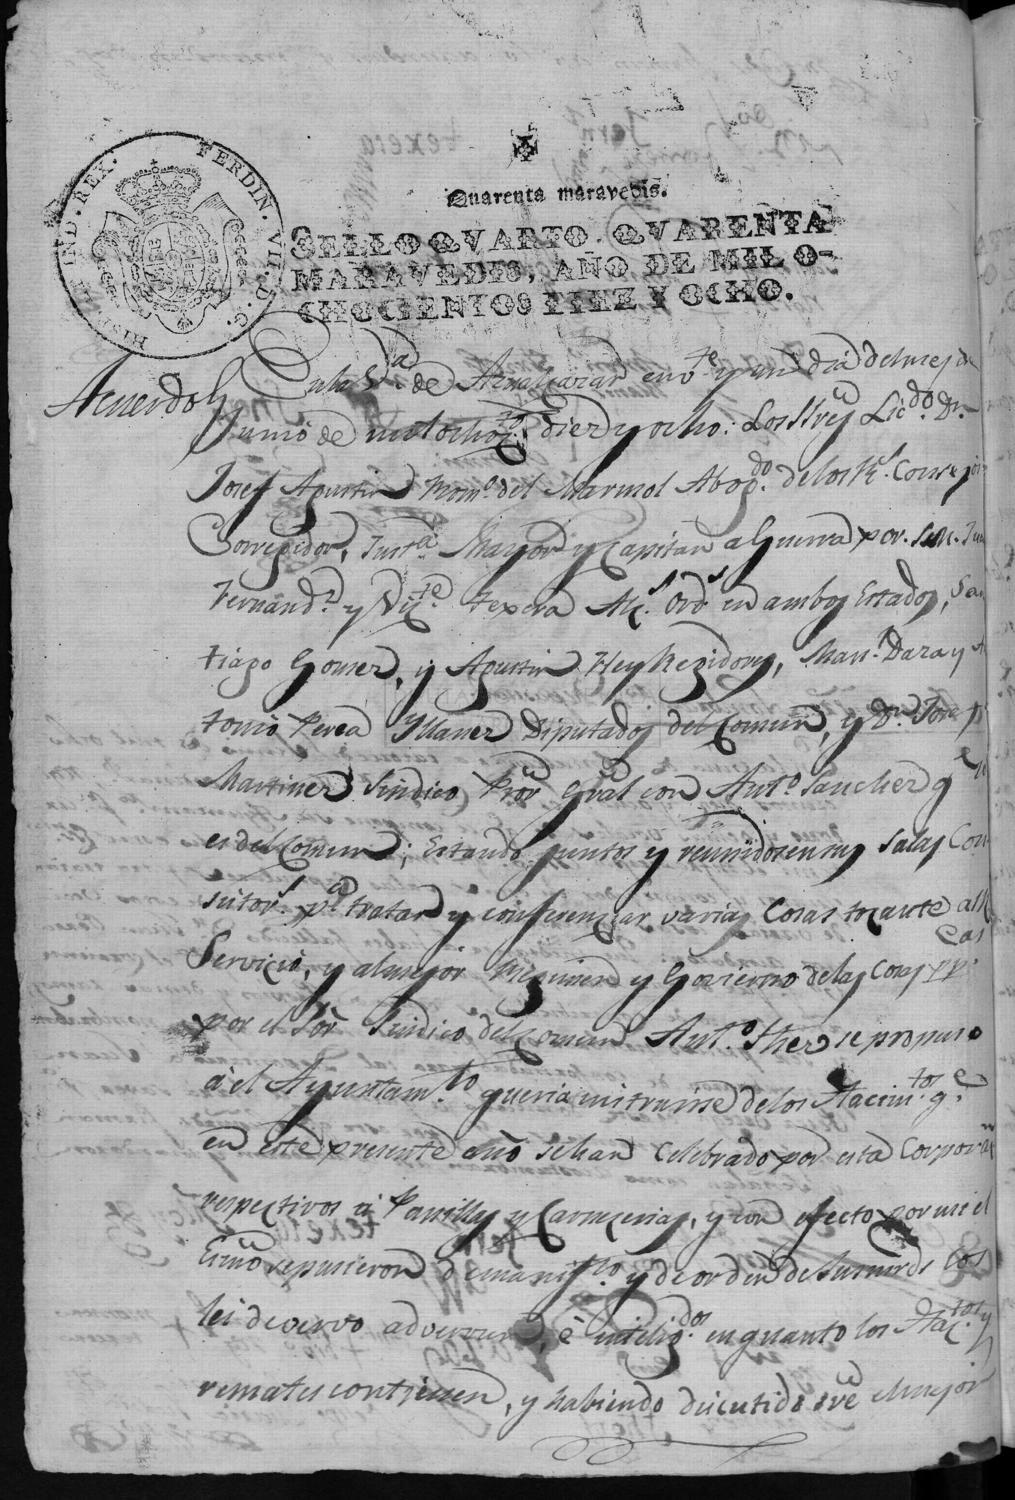 HISP. ET IND. REX. FERDIN. VII. D. G.
Quarenta maravedis.
SELLO QVARTO. QVARENTA
MARAVEDIS, AÑO DE MIL O-
CHOCIENTOS DIEZ Y OCHO.
Acuerdo
En la Va. de Aznalcazar en vte. y un dia del mes de
Junio de mil ochoztos. diez y ocho: Los Sres. Licdo. Dn.
Josef Agustin Romo. del Marmol Abogdo. de los Rs. Consejos
Corregidor, Justa. Mayor y Capitan a Guerra por S.M. Juan
Fernandz. y Vizte. Texera Alcs. Ords. en ambos Estados, San
tiago Gomez, y Agustin Rey Regidores, Manl. Dara y An
tonio Perea Yllanez Diputados del Comun, y Dn. Josep
Martinez Sindico Pror. Gral con Anto. Sanchez qe. lo
es del Comun; Estando juntos y reunidos en sus Salas Con
sistors. pa. tratar y conferenziar varias Cosas tocante al Rl
Servicio, y al mejor Regimen y Govierno de las Cosas ppcas.
por el Sor. Sindico del Comun Anto. Shez se propuso
á el Ayuntamto. queria instruirse de los Hacimtos. qe.
en este presente año se han Celebrado por esta Corporon.
respectivos á Panillas y Carnizerias, y con efecto por mi el
Esno. se pusieron de manifto. y de orden de sus mrds. los
lei de vervo ad vervum, é inteligdos. en quanto los Hactos. y
remates contienen, y habiendo discutido sre. el mejor